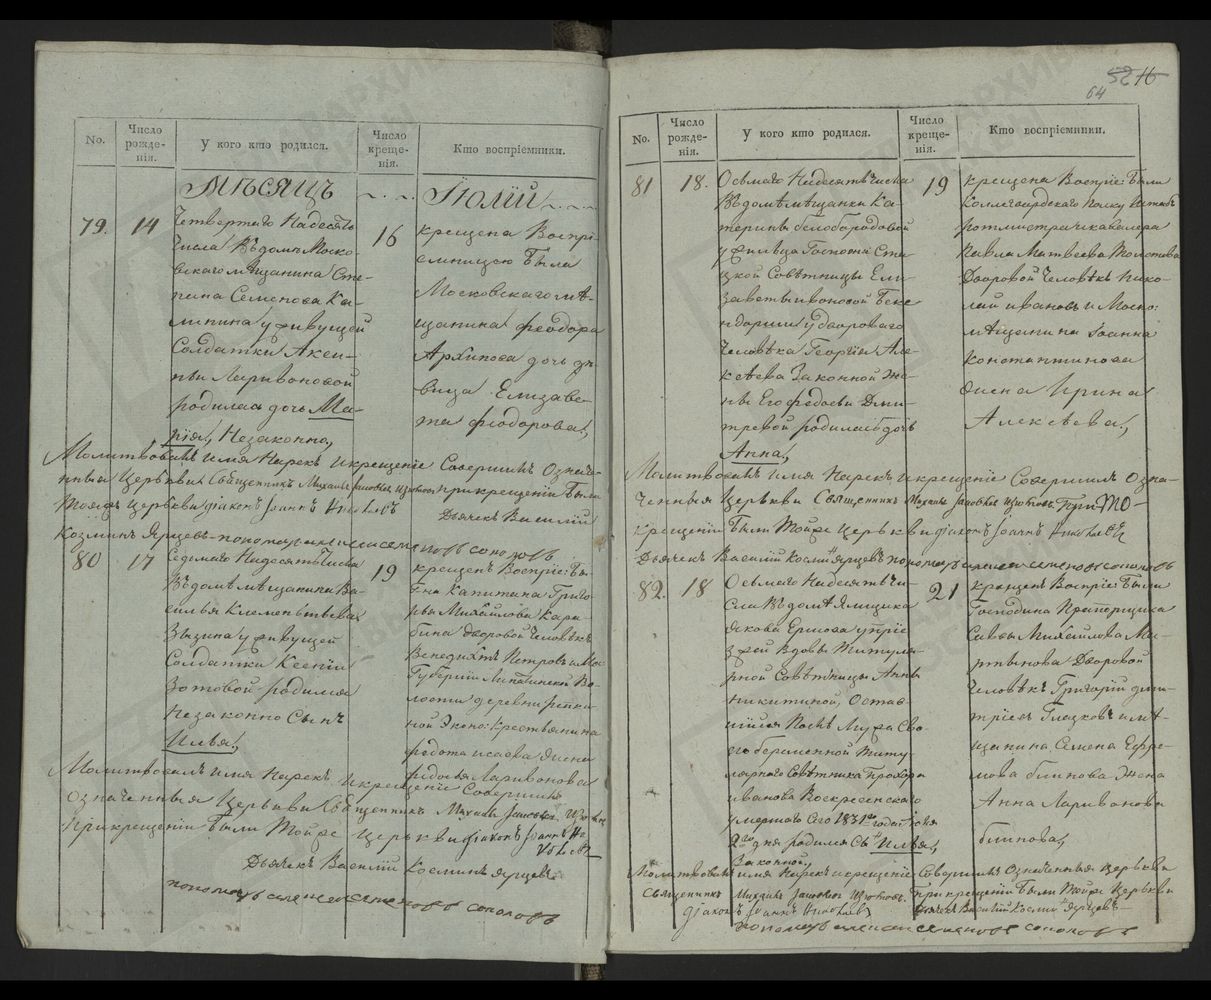 No.
Число рожденія.
У кого кто родился.
Число крещенія.
Кто воспріемники.
Мѣсяцъ Іюлій
79. 14
Четвертаго Надесять
Числа Въ домѣ Моско-
вскаго мѣщанина Сте-
пана Семенова Ка-
липина у живущей
Солдатки Аксин-
ьи Ларивоновой
родилась дочь Ма-
рія, Незаконно,
16
крещена Воспрі-
емницею Была
Московскаго мѣ-
щанина Феодора
Архипова дочь дѣ-
вица Елизаве-
та Феодорова,
Молитвовалъ имя Нарекъ и крещеніе Совершилъ Означе-
нныя Церькви Священникъ Михаилъ при крещеніи Были
Тояжъ Церькви діаконъ Іоаннъ Дьячекъ Василій
Козминъ Ярцевъ пономарь Семеновъ Соколовъ
80 17
Седьмаго Надесять Числа
Въ домѣ мѣщанина Ва-
силья Клементьева
Зызина у живущей
Солдатки Ксеніи
Зотовой родился
Незаконно Сынъ
Илья,
19
крещенъ Воспріе: Бы-
Г-на Капитана Григо-
рья Михайлова Кара-
бина дворовой Человѣкъ
Венедиктъ Петровъ и Мос
Губерніи Липатинской Во-
лости деревни
ной Эконо: Крестьянина
Федота Исаева Жена
Федосья Ларивонова
Молитвовалъ имя Нарекъ и крещеніе Совершилъ
Означенныя Церькви Священникъ Михаилъ
При крещеніи Были Тойже Церькви діаконъ Іоаннъ
Дьячекъ Василій Косминъ Ярцевъ
пономарь Семеновъ Соколовъ
52 16
64
No.
Число рожденія.
У кого кто родился.
Число крещенія.
Кто воспріемники.
81 18.
Осьмаго Надесять Числа
Въ домѣ мѣщанки Ка-
терины бѣлобородовой
у жильца Госпожи Ста-
цкой Совѣтницы Ели-
заветы ивановой Беке
ндорши у двороваго
Человѣка Георгія Але-
ксѣева Законной же-
ны Его Федосьи Дми-
тревой родилась дочь
Анна,
19
крещена Воспріе: Были
Коллегвардскаго Полку Штабъ
ротмистра и кавалера
Павла Матвеева Толстова
Дворовой Человѣкъ Нико-
лай ивановъ и Моско:
мѣщанина Іоанна
Константинова
жена Ирина
Алексѣева,
Молитвовалъ имя Нарекъ и крещеніе Совершилъ Озна-
ченныя Церькви Священникъ Михаилъ При
крещеніи Были Тойже Церькви діаконъ Іоаннъ
Дьячекъ Василій Косминъ Ярцевъ пономарь Семеновъ Соколовъ
82. 18
Осьмаго Надесять Чи-
сла Въ домѣ Ямщика
Якова Ершова у пріе
зжей Вдовы Титуля-
рной Совѣтницы Анны
Никитиной, Остав-
шійся Послѣ Мужа Сво-
его беременной Титу-
лярнаго Совѣтника Прохора
иванова Воскресенскаго
умершаго Сего 1831го года
дня родился Сынъ Илья,
Законной,
21
крещенъ Воспріе: Были
Господина Прапорщика
Савы Михайлова Ма-
ртынова Дворовой
Человѣкъ Григорій дми-
тріевъ Глазковъ и мѣ-
щанина Семена Ефре-
мова блинова Жена
Анна Ларивонова
блинова,
Молитвовалъ имя Нарекъ и крещеніе Совершилъ Означенныя Церькви
Священникъ Михаилъ При крещеніи Были Тойже Церькви
діаконъ Іоаннъ Дьячекъ Василій Косминъ Ярцевъ
пономарь Семеновъ Соколовъ